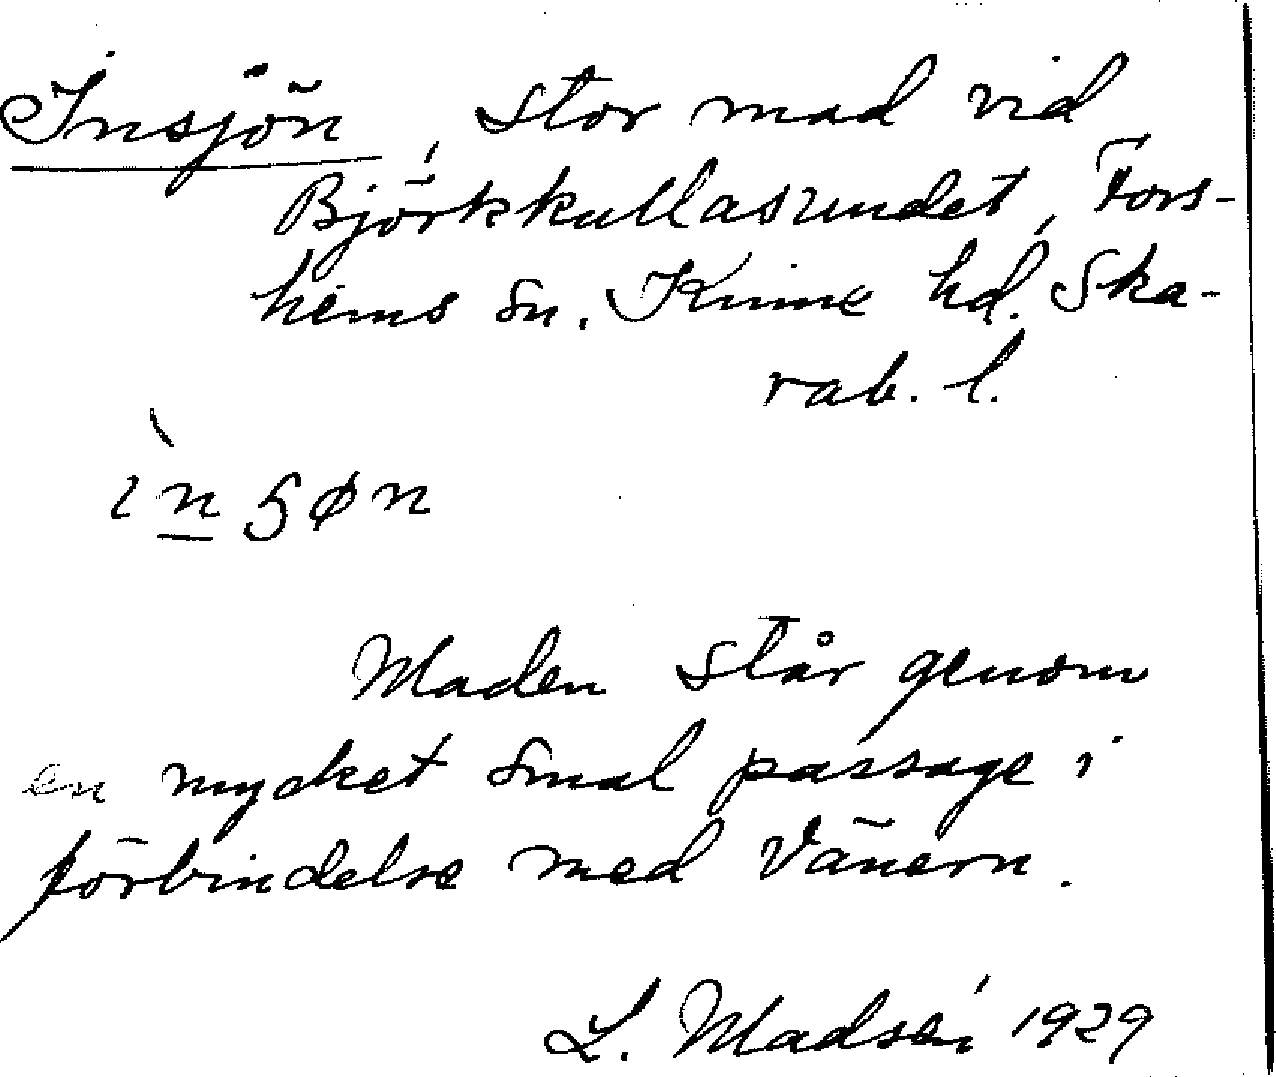 Insjön, stor mad vid
Björkkullasundet, Fors-
hems sn. Kinne hd. Ska-
rab. l.
ìn§øn
Maden står genom
en mycket smal passage i
förbindelse med Vänern.
L. Madsén 1929